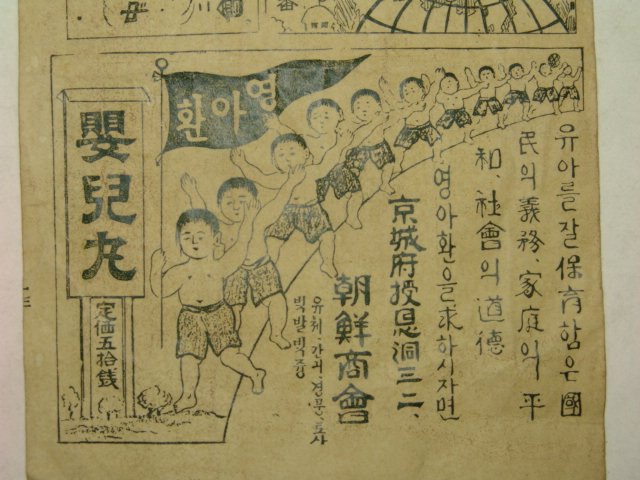 유아를잘保育함은國
民의義務、家庭의平
和、社會의道德
영아환을求하시자면
京城府授恩洞三二、
朝鮮商會
유체、간긔、경풍、토사
빅발빅즁
영아환
嬰兒丸
定価五拾銭